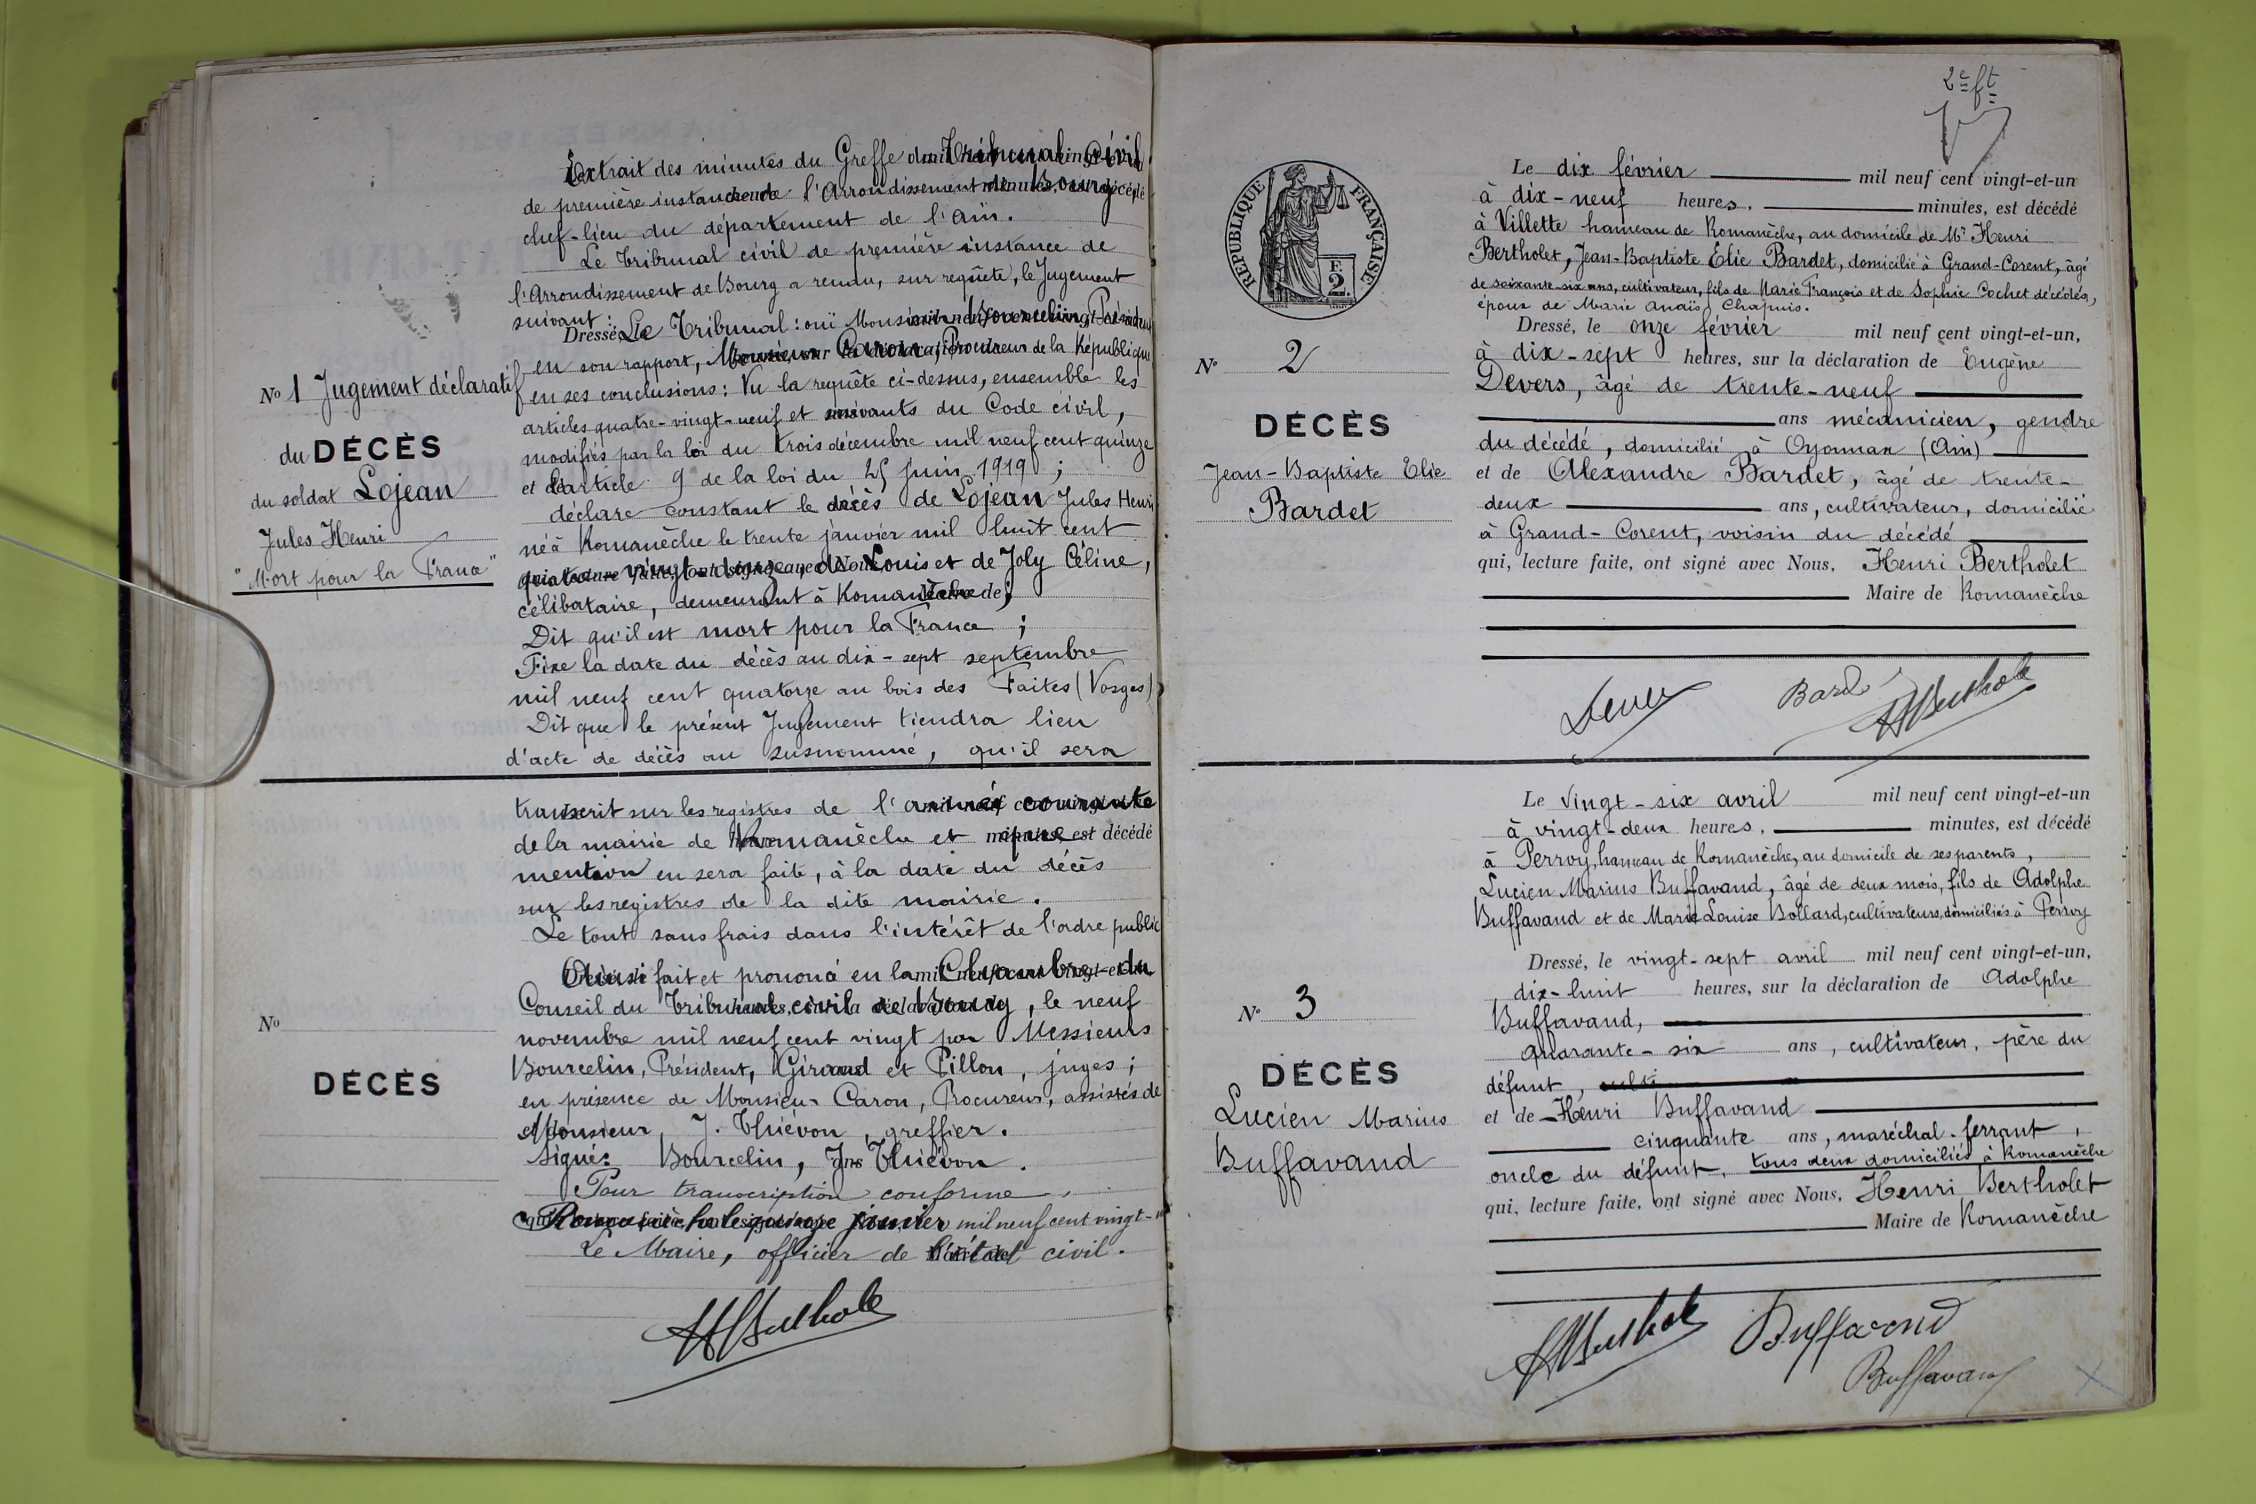 Extrait des minutes du Greffe du Tribunal Civil
de première instance de l'Arrondissement de Bourg
chef-lieu du département de l'Ain.
Le Tribunal civil de première instance de
l'Arrondissement de Bourg a rendu, sur requête, le Jugement
suivant :
Dressé, le
Le Tribunal : ouï Monsieur Bourcelin, Président
en son rapport, Monsieur Caron, Procureur de la République
en ses conclusions : Vu la requête ci-dessus, ensemble les
articles quatre-vingt-neuf et suivants du Code civil,
modifiés par la loi du trois décembre mil neuf cent quinze
et l'article 9 de la loi du 25 juin 1919 ;
déclare constant le décès de Lojean Jules Henri
né à Romanèche le trente janvier mil huit cent
quatre-vingt-douze, de Louis et de Joly Céline,
célibataire, demeurant à Romanèche ;
Dit qu'il est mort pour la France ;
Fixe la date du décès au dix-sept septembre
mil neuf cent quatorze au bois des Faites (Vosges)
Dit que le présent Jugement tiendra lieu
d'acte de décès au susnommé, qu'il sera
No 1 Jugement déclaratif
du DÉCÈS
du soldat Lojean
Jules Henri
"Mort pour la France"
transcrit sur les registres de l'année courante
de la mairie de Romanèche et que est décédé
mention en sera faite, à la date du décès
sur les registres de la dite mairie.
Le tout sans frais dans l'intérêt de l'ordre public
Ainsi fait et prononcé en la Chambre du
Conseil du Tribunal civil de Bourg, le neuf
novembre mil neuf cent vingt par Messieurs
Bourcelin, Président, Giraud et Pillon, juges ;
en présence de Monsieur Caron, Procureur, assistés de
Monsieur J. Thiévon, greffier.
Signé : Bourcelin, Jns Thiévon.
Pour transcription conforme,
Romanèche le quinze janvier mil neuf cent vingt-un
Le Maire, officier de l'état civil.
HBerthole
No
DÉCÈS
2e ft
RÉPUBLIQUE FRANÇAISE
F.
2.
Le dix février mil neuf cent vingt-et-un
à dix-neuf heures, minutes, est décédé
à Villette hameau de Romanèche, au domicile de Mr Henri
Bertholet, Jean-Baptiste Elie Bardet, domicilié à Grand-Corent, âgé
de soixante-six ans, cultivateur, fils de Marie François et de Sophie Cochet décédés,
époux de Marie Anaïs Chapuis.
Dressé, le onze février mil neuf cent vingt-et-un,
à dix-sept heures, sur la déclaration de Eugène
Devers, âgé de trente-neuf
ans mécanicien, gendre
du décédé, domicilié à Oyonnax (Ain)
et de Alexandre Bardet, âgé de trente-
deux ans, cultivateur, domicilié
à Grand-Corent, voisin du décédé
qui, lecture faite, ont signé avec Nous, Henri Bertholet
Maire de Romanèche
Nº 2
DÉCÈS
Jean-Baptiste Elie
Bardet
Devers Bardet HBerthole
Le vingt-six avril mil neuf cent vingt-et-un
à vingt-deux heures, minutes, est décédé
à Perroy, hameau de Romanèche, au domicile de ses parents,
Lucien Marius Buffavand, âgé de deux mois, fils de Adolphe
Buffavand et de Marie Louise Bollard, cultivateurs, domiciliés à Perroy
Dressé, le vingt-sept avril mil neuf cent vingt-et-un,
dix-huit heures, sur la déclaration de Adolphe
Buffavand,
quarante-six ans, cultivateur, père du
défunt, culti
et de Henri Buffavand
cinquante ans, maréchal-ferrant,
oncle du défunt, tous deux domiciliés à Romanèche
qui, lecture faite, ont signé avec Nous, Henri Bertholet
Maire de Romanèche
Nº 3
DÉCÈS
Lucien Marius
Buffavand
HBerthole Buffavand
Buffavand